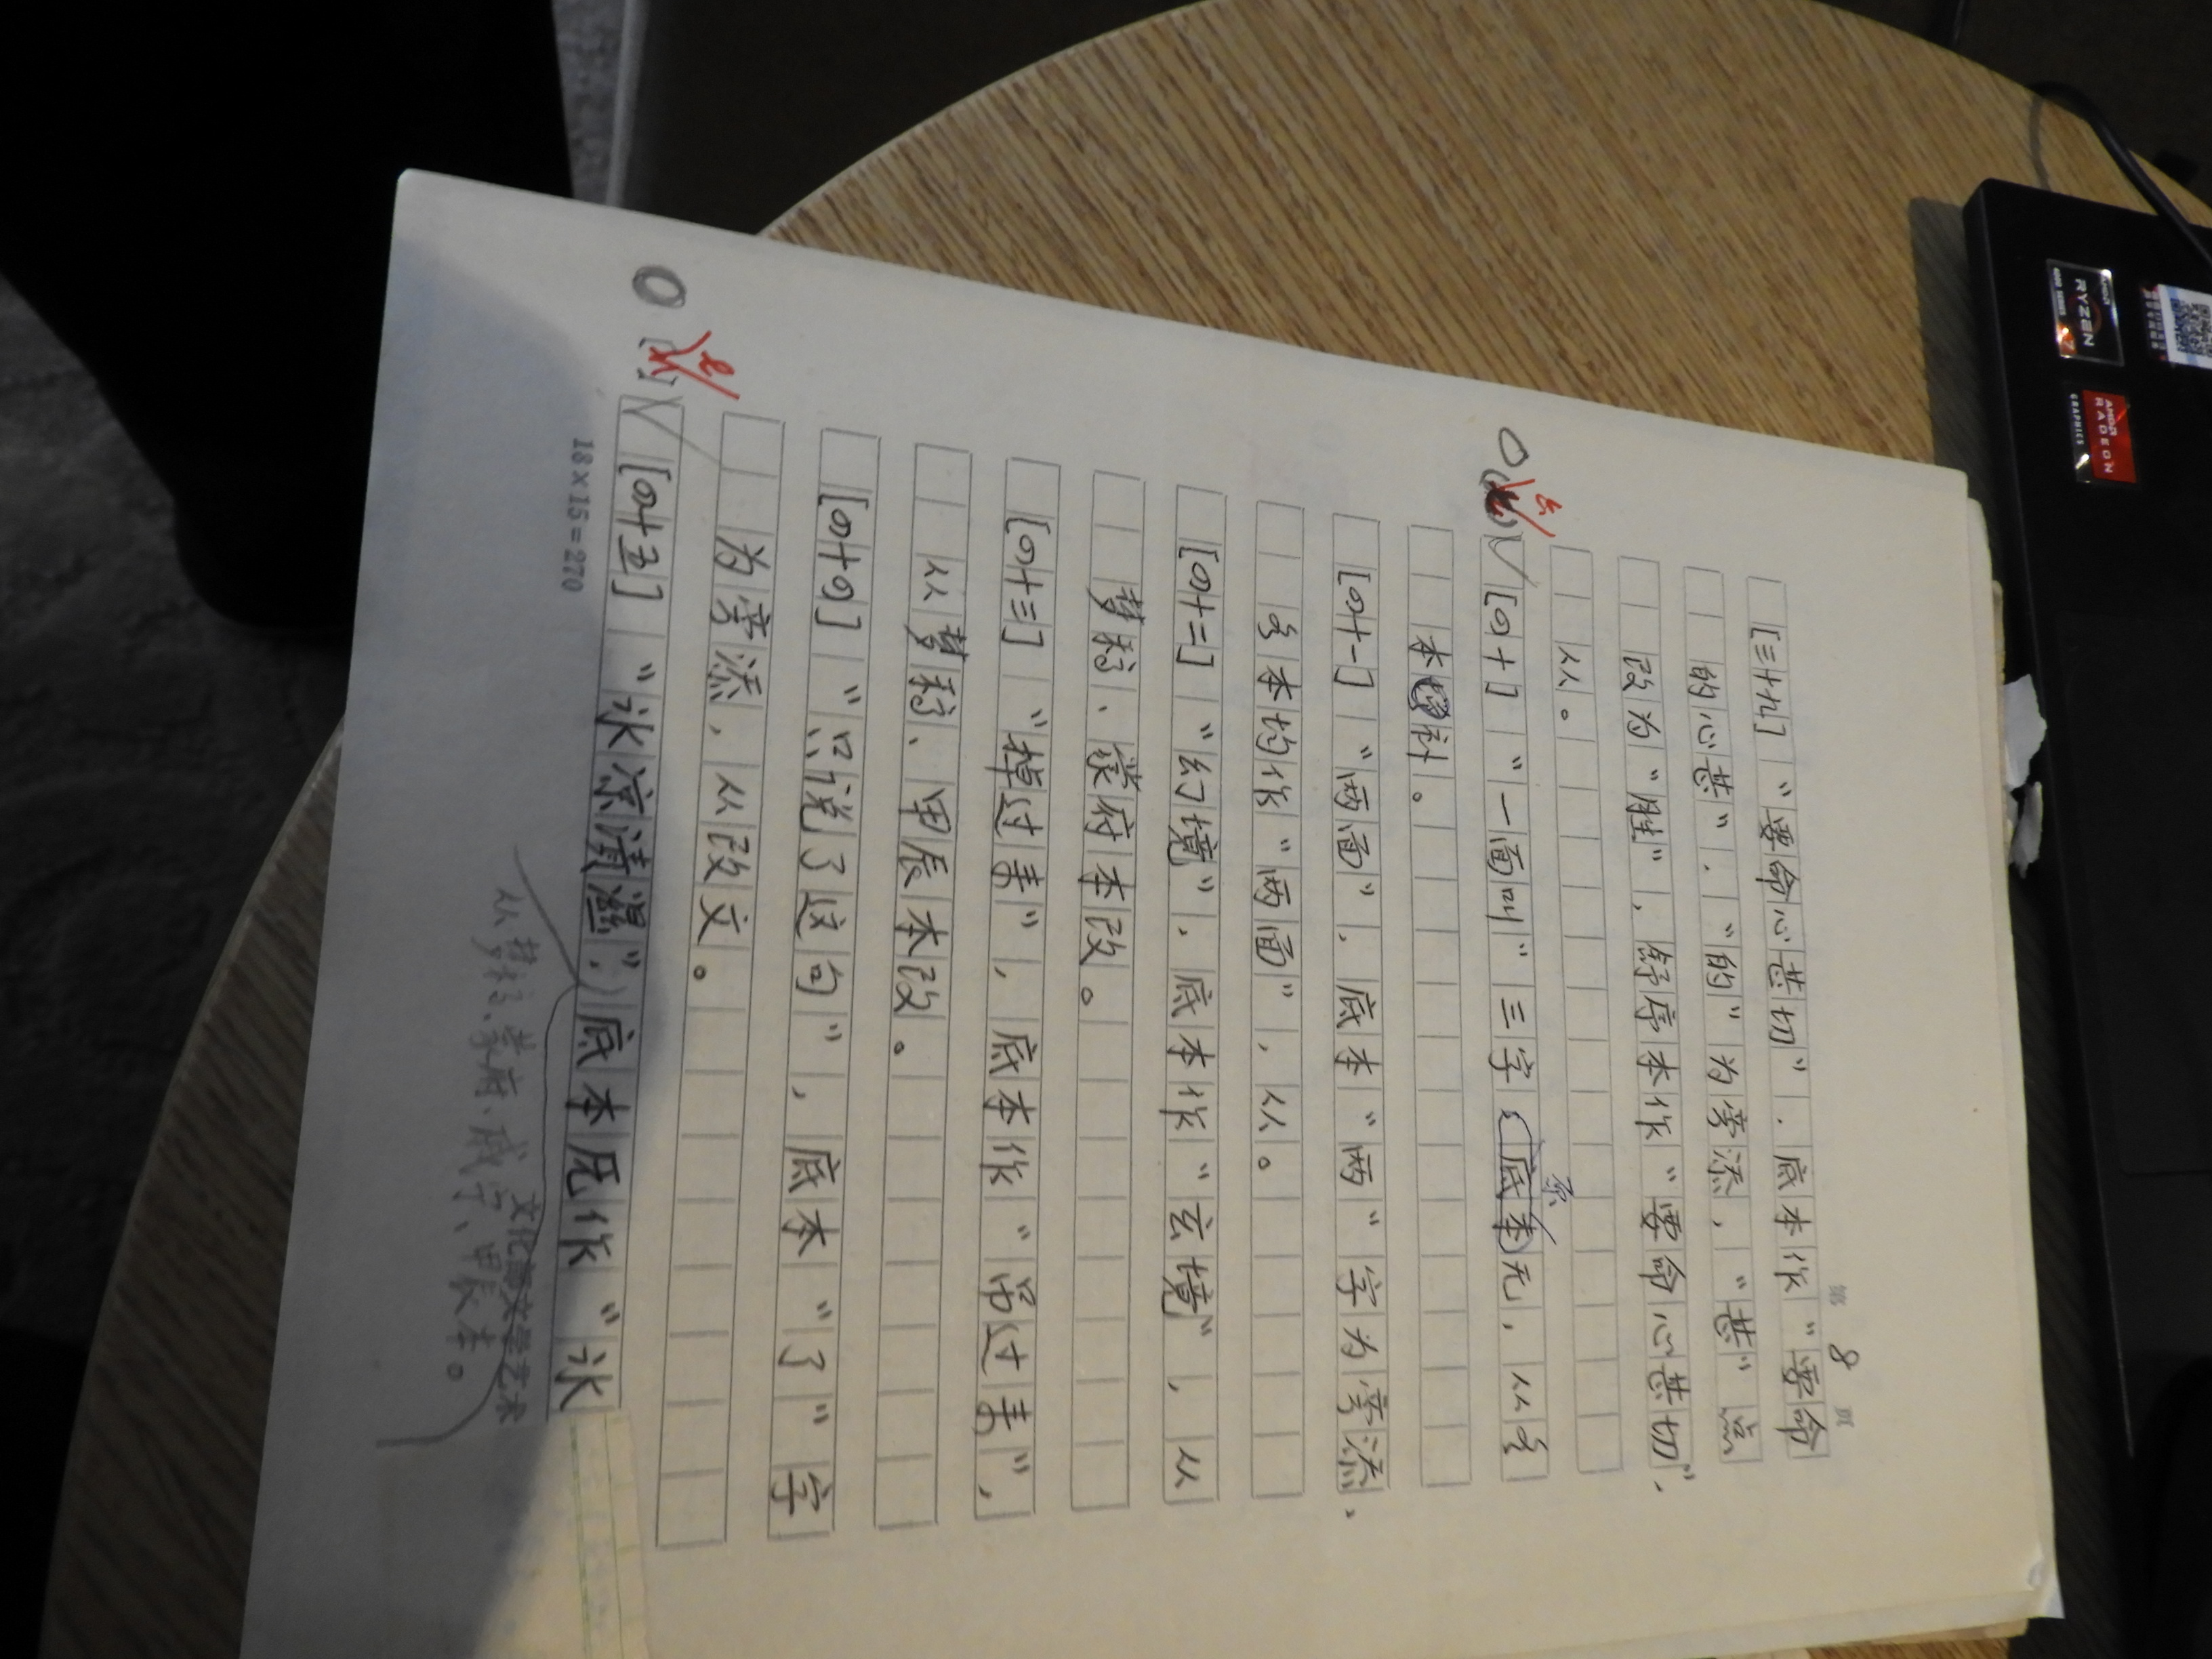 第 8 页
[三十九] “要命心甚切”. 底本作“要命
的心甚”. “的”为旁添, “甚”点
改为“胜”, 舒序本作“要命心甚切”,
从。
[四十] “一面叫”三字底本无, 从各
原
本补。
[四十一] “两面”. 底本“两”字为旁添,
各本均作“两面”, 从。
[四十二] “幻境”. 底本作“玄境”, 从
梦稿、蒙府本改。
[四十三] “掉过来”, 底本作“吊过来”,
从梦稿、甲辰本改。
[四十四] “只说了这句”, 底本“了”字
为旁添, 从改文。
[四十五] “冰凉渍湿”. 底本无作“冰
从梦稿、蒙府、戚宁、甲辰本。
18×15=270
AMD
RYZEN
7
4000 SERIES
AMD
RADEON
GRAPHICS